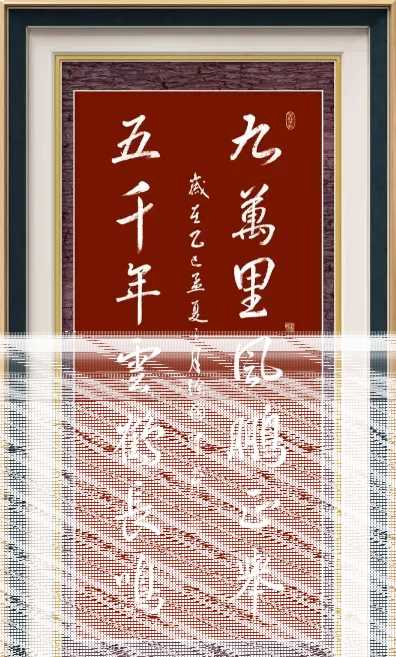 九萬里風鵬正舉
歲在乙巳孟夏
五千年雲鶴長鳴